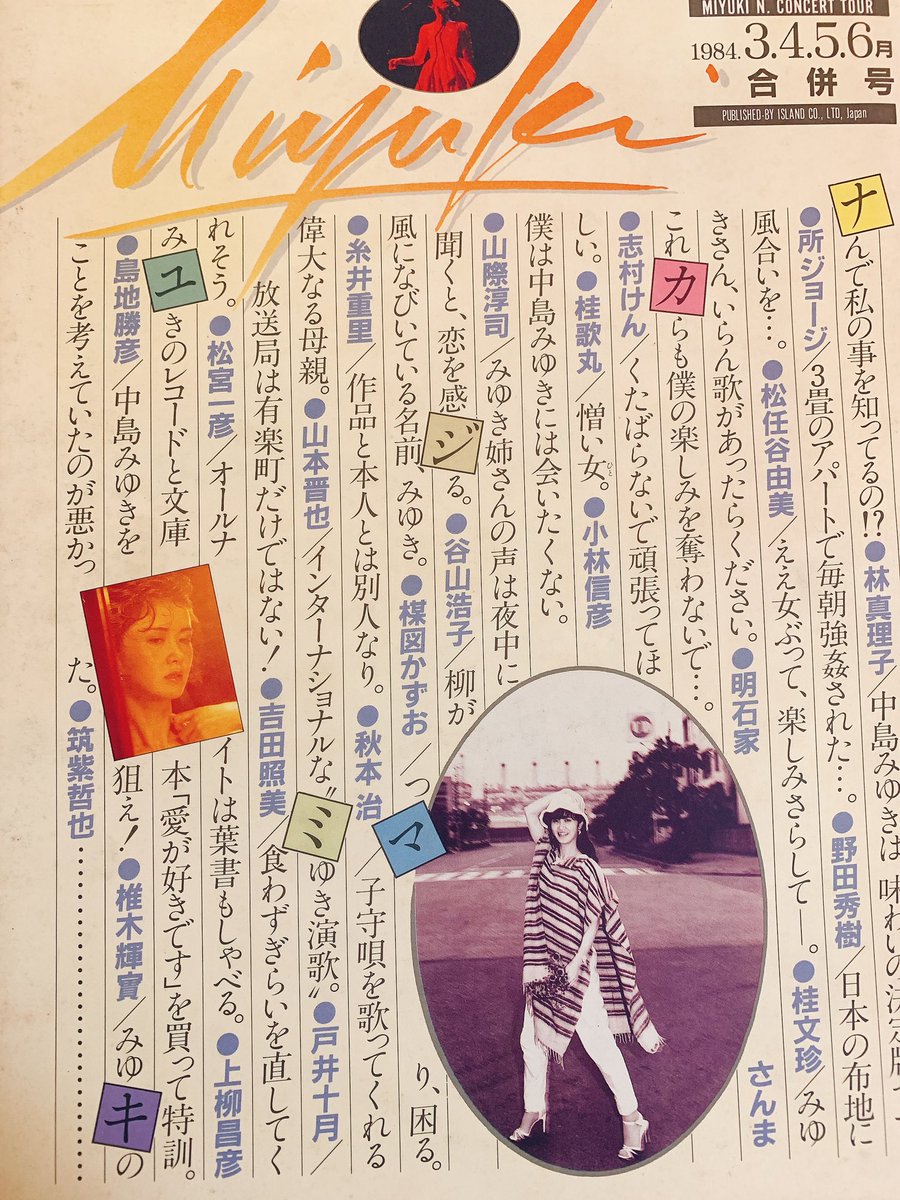 MIYUKI N. CONCERT TOUR
1984. 3.4.5.6月
合併号
PUBLISHED・BY ISLAND CO., LTD, Japan
Miyuki
ナんで私の事を知ってるの!?●林真理子/中島みゆきは、味わいの決定版
●所ジョージ/3畳のアパートで毎朝強姦された…。●野田秀樹/日本の布地に
風合いを…。●松任谷由美/ええ女ぶって、楽しみさらして―。●桂文珍/みゆ
きさん、いらん歌があったらください。●明石家さんま
これカらも僕の楽しみを奪わないで…。
●志村けん/くたばらないで頑張ってほ
しい。●桂歌丸/憎い女(ひと)。●小林信彦
僕は中島みゆきには会いたくない。
●山際淳司/みゆき姉さんの声は夜中に
聞くと、恋を感ジる。●谷山浩子/柳が
風になびいている名前、みゆき。●楳図かずお/つマり、困る。
●糸井重里/作品と本人とは別人なり。●秋本治/子守唄を歌ってくれる
偉大なる母親。●山本晋也/インターナショナルな〝ミゆき演歌〟。●戸井十月/
放送局は有楽町だけではない!●吉田照美/食わずぎらいを直してく
れそう。●松宮一彦/オールナイトは葉書もしゃべる。●上柳昌彦
みユきのレコードと文庫本「愛が好きです」を買って特訓。
●島地勝彦/中島みゆきを狙え!●椎木輝實/みゆキの
ことを考えていたのが悪かった。●筑紫哲也………………